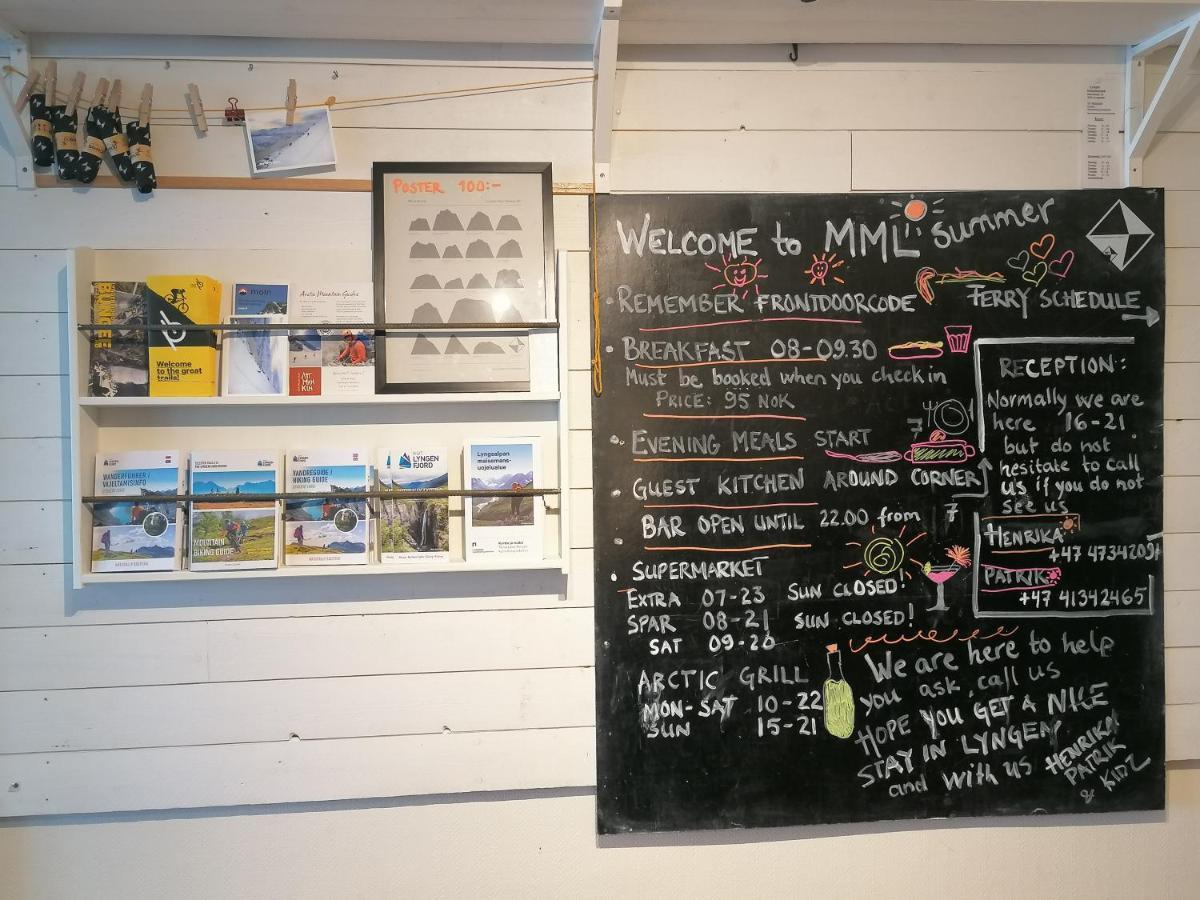 POSTER 100:-
Arctic Mountain Guides
moin
Welcome
to the great
trails!
WANDERFÜHRER /
VAELTAMISINFO
MOUNTAIN
BIKING GUIDE
VANDREGUIDE /
HIKING GUIDE
VISIT
LYNGEN
FJORD
Lyngsalpan
maisemans-
uojelualue
WELCOME to MML summer
REMEMBER FRONTDOORCODE
FERRY SCHEDULE
BREAKFAST 08-09.30
Must be booked when you check in
PRICE: 95 NOK
EVENING MEALS START 7
GUEST KITCHEN AROUND CORNER
BAR OPEN UNTIL 22.00 from 7
SUPERMARKET
EXTRA 07-23 SUN CLOSED!
SPAR 08-21 SUN CLOSED!
SAT 09-20
ARCTIC GRILL
MON-SAT 10-22
SUN 15-21
RECEPTION:
Normally we are
here 16-21
but do not
hesitate to call
us if you do not
see us
HENRIKA
+47 47342091
PATRIK
+47 41342465
We are here to help
you ask, call us
HOPE YOU GET A NICE
STAY IN LYNGEN
and with us HENRIKA
PATRIK
& KIDZ